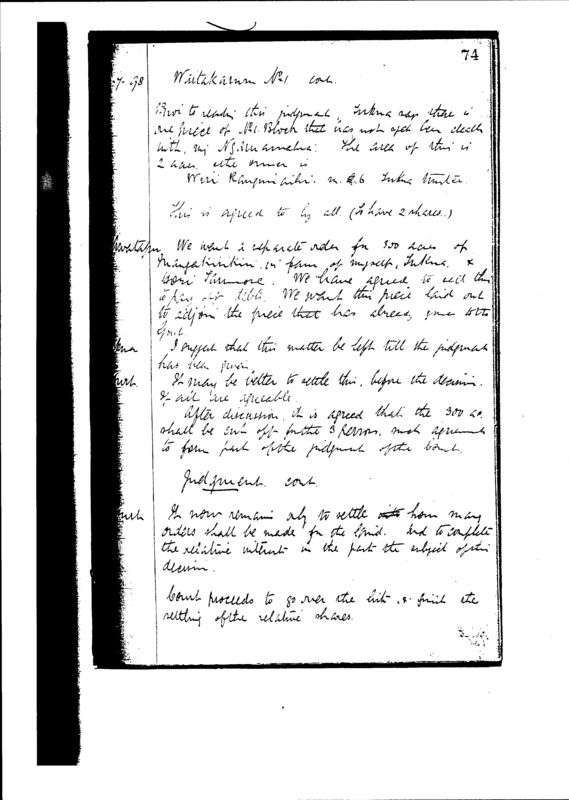 74
7-98 No 1. cont.
Prior to reading this judgment, says there is
one piece of No 1. Block that has not yet been dealt
with, The area of this is
2 acres, the owner is
Wiri m. 6
This is agreed to by all. (To have 2 shares.)
We want a separate order for 300 acres of
in favor of myself, &
Hori We have agreed to sell this
to pay off We want this piece laid out
to adjoin the piece that has already gone to the
Govt.
I suggest that this matter be left till the judgment
has been given.
It may be better to settle this, before the decision.
If all are agreeable.
After discussion, it is agreed that the 300 ac.
shall be cut off for the 3 Persons, such agreement
to form part of the judgment of the Court.
Judgment. cont.
It now remains only to settle how many
orders shall be made for the land. And to complete
the relative interests in the part the subject of this
decision.
Court proceeds to go over the list & finish the
settling of the relative shares.